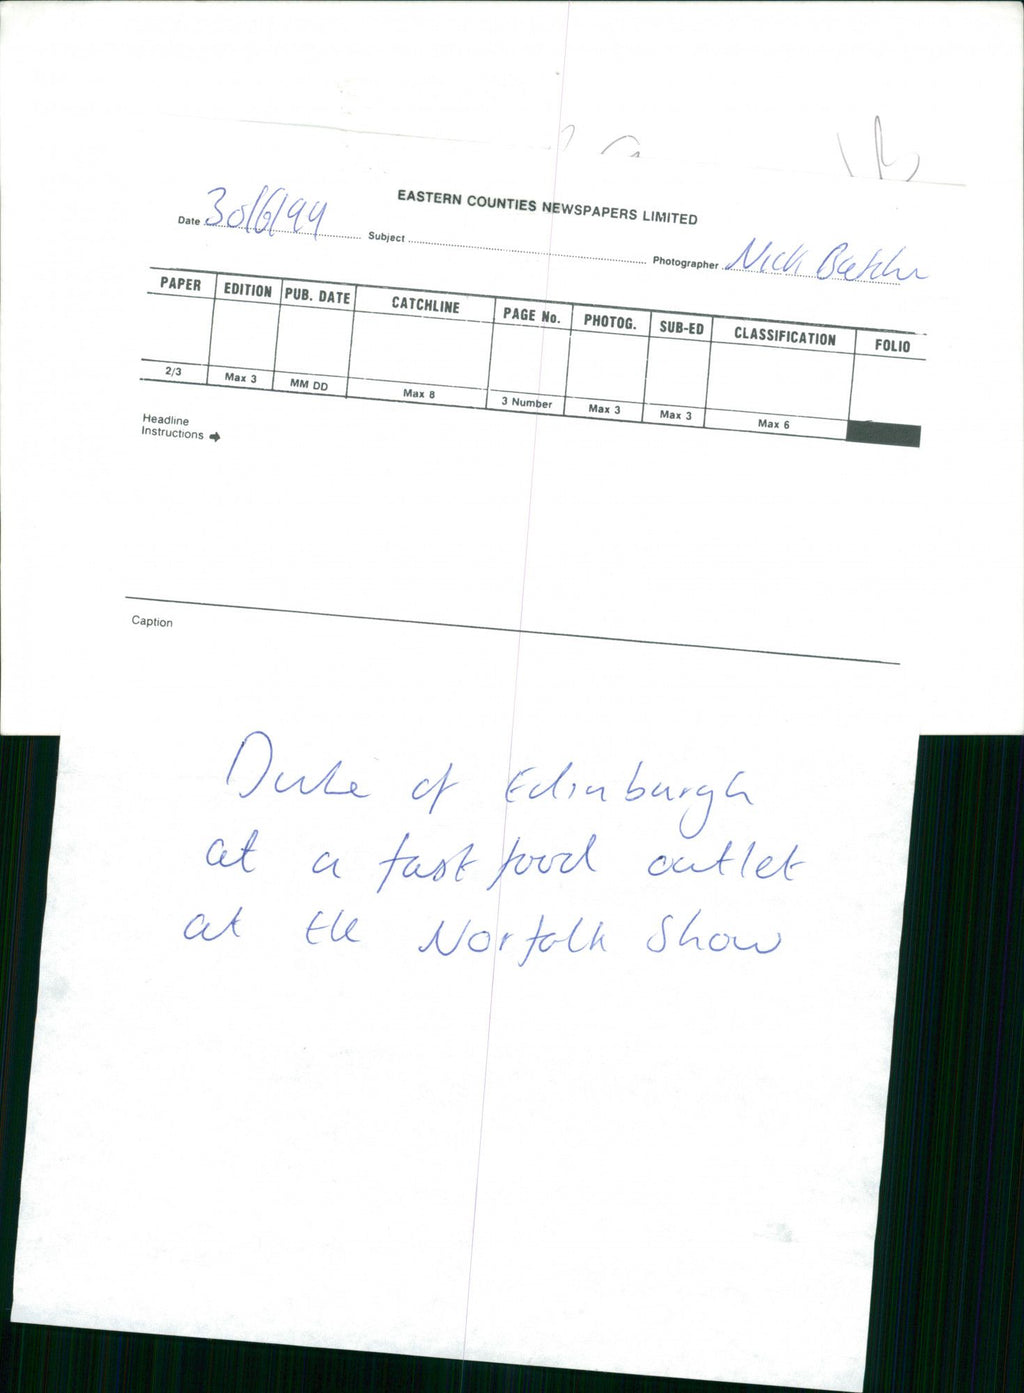 EASTERN COUNTIES NEWSPAPERS LIMITED
Date 30/6/94 Subject Photographer Nick
PAPER EDITION PUB. DATE CATCHLINE PAGE No. PHOTOG. SUB-ED CLASSIFICATION FOLIO
2/3 Max 3 MM DD Max 8 3 Number Max 3 Max 3 Max 6
Headline
Instructions
Caption
Duke of Edinburgh
at a fast food outlet
at the Norfolk Show